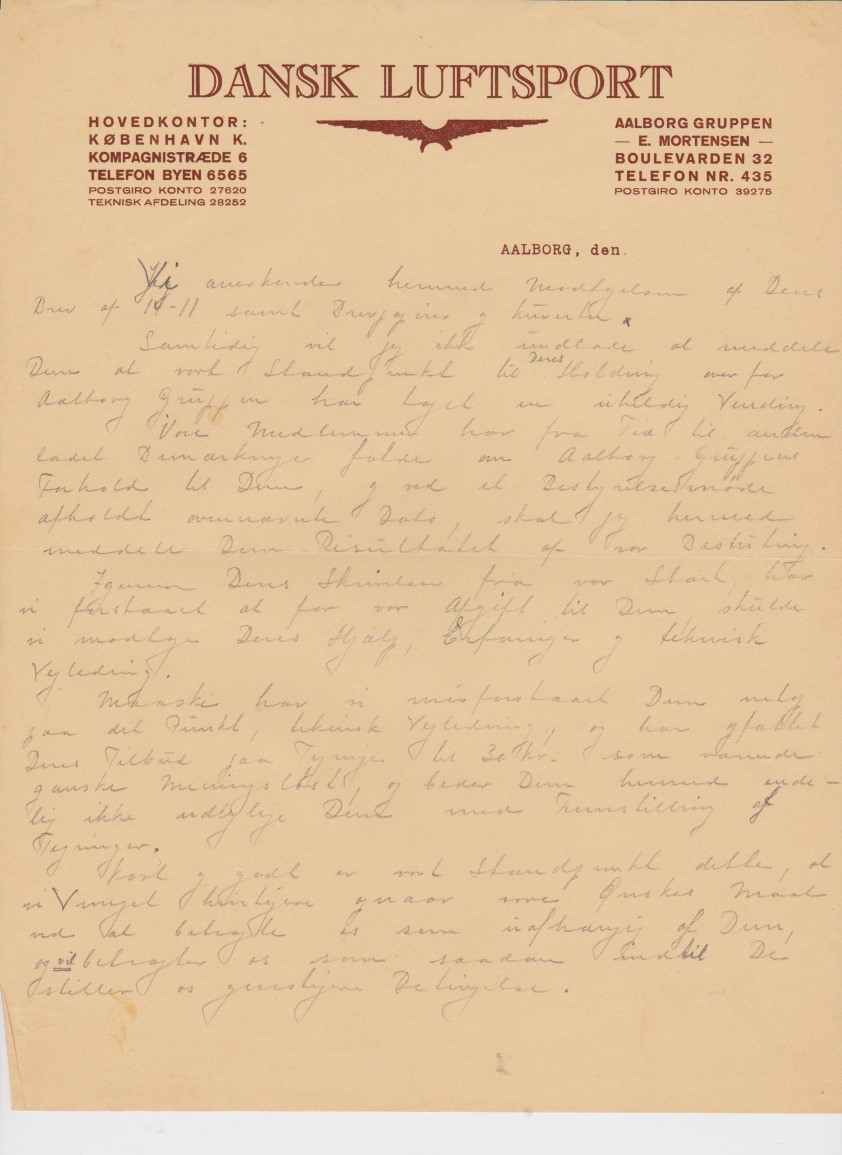 DANSK LUFTSPORT
HOVEDKONTOR:
KØBENHAVN K.
KOMPAGNISTRÆDE 6
TELEFON BYEN 6565
POSTGIRO KONTO 27620
TEKNISK AFDELING 28252
AALBORG GRUPPEN
— E. MORTENSEN —
BOULEVARDEN 32
TELEFON NR. 435
POSTGIRO KONTO 39275
AALBORG, den.
anerkender hermed Modtagelsen af Deres
Brev af 14-11 samt og Kuverter.
Samtidig vil jeg ikke undlade at meddele
Dem at vort Standpunkt til Deres Holdning over for
Aalborg Gruppen har taget en uheldig Vending.
Vore Medlemmer har fra Tid til anden
ladet Bemærkninger falde om Aalborg Gruppens
Forhold til Dem, og ved et Bestyrelsesmøde
afholdt ovennævnte Dato, skal jeg hermed
meddele Dem Resultatet af vor Beslutning.
Igennem Deres Skrivelser fra vor Start, har
vi forstaaet at for vor Afgift til Dem skulde
vi modtage Deres Hjælp, Erfaringer og teknisk
Vejledning.
Maaske har vi misforstaaet Dem netop
paa det Punkt, teknisk Vejledning, og har opfattet
Deres Tilbud paa Tegninger til 30 Kr. som værende
ganske Meningsløst, og beder Dem hermed ende-
lig ikke udlejlige Dem med Fremstilling af
Tegninger.
Kort og godt er vort Standpunkt dette, at
vi hurtigere opnaar vore Ønskes Maal
ved at betragte os som uafhængig af Dem,
og vil betragter os som saadan indtil De
stiller os gunstigere Betingelse.